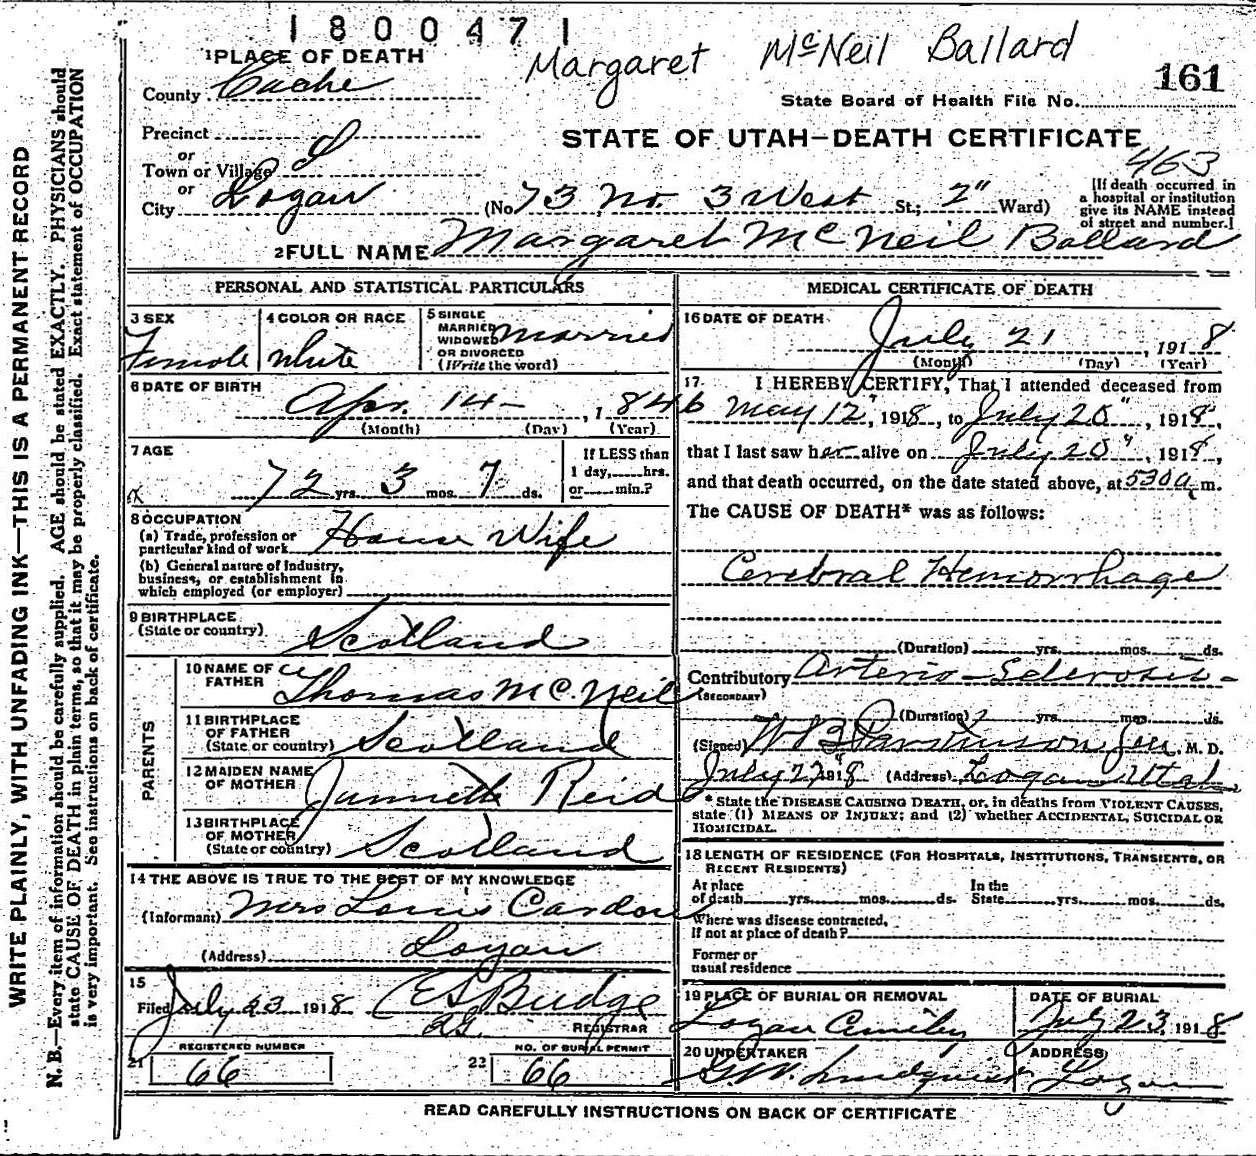 1800471
Margaret McNeil Ballard
161
1 PLACE OF DEATH
County Cache
State Board of Health File No.
Precinct
or
Town or Village
or
City Logan
STATE OF UTAH—DEATH CERTIFICATE
463
(No 73 No. 3 West St.; 2" Ward)
[If death occurred in
a hospital or institution
give its NAME instead
of street and number.]
2 FULL NAME Margaret McNeil Ballard
WRITE PLAINLY, WITH UNFADING INK—THIS IS A PERMANENT RECORD
N. B.—Every item of information should be carefully supplied. AGE should be stated EXACTLY. PHYSICIANS should
state CAUSE OF DEATH in plain terms, so that it may be properly classified. Exact statement of OCCUPATION
is very important. See instructions on back of certificate.
PERSONAL AND STATISTICAL PARTICULARS
3 SEX
Female
4 COLOR OR RACE
White
5 SINGLE
MARRIED
WIDOWED
OR DIVORCED
(Write the word)
married
6 DATE OF BIRTH
Apr. 14 , 1 846
(Month) (Day) (Year)
7 AGE
72 yrs. 3 mos. 7 ds.
If LESS than
1 day, hrs.
or min.?
8 OCCUPATION
(a) Trade, profession or
particular kind of work House Wife
(b) General nature of Industry,
business, or establishment in
which employed (or employer)
9 BIRTHPLACE
(State or country) Scotland
PARENTS
10 NAME OF
FATHER Thomas McNeil
11 BIRTHPLACE
OF FATHER
(State or country) Scotland
12 MAIDEN NAME
OF MOTHER Jannett Reid
13 BIRTHPLACE
OF MOTHER
(State or country) Scotland
14 THE ABOVE IS TRUE TO THE BEST OF MY KNOWLEDGE
(Informant) Mrs Louis Cardon
(Address) Logan
15
Filed July 23 1918 E S Budge
REGISTRAR
REGISTERED NUMBER
21 66
NO. OF BURIAL PERMIT
22 66
MEDICAL CERTIFICATE OF DEATH
16 DATE OF DEATH
July 21 , 1918
(Month) (Day) (Year)
17. I HEREBY CERTIFY, That I attended deceased from
May 12", 1918, to July 20", 1918,
that I last saw her alive on July 20", 1918,
and that death occurred, on the date stated above, at 530 a. m.
The CAUSE OF DEATH* was as follows:
Cerebral Hemorrhage
(Duration) yrs. mos. ds.
Contributory Arterio-Sclerosis
(SECONDARY)
(Duration) yrs. mos. ds.
(Signed) W B Parkinson M. D.
July 22 1918 (Address) Logan Utah
* State the DISEASE CAUSING DEATH, or, in deaths from VIOLENT CAUSES,
state (1) MEANS OF INJURY; and (2) whether ACCIDENTAL, SUICIDAL OR
HOMICIDAL.
18 LENGTH OF RESIDENCE (FOR HOSPITALS, INSTITUTIONS, TRANSIENTS, OR
RECENT RESIDENTS)
At place
of death yrs. mos. ds.
In the
State yrs. mos. ds.
Where was disease contracted,
If not at place of death?
Former or
usual residence
19 PLACE OF BURIAL OR REMOVAL
Logan
DATE OF BURIAL
July 23, 1918
20 UNDERTAKER
G.W. Lindquist
ADDRESS
Logan
READ CAREFULLY INSTRUCTIONS ON BACK OF CERTIFICATE